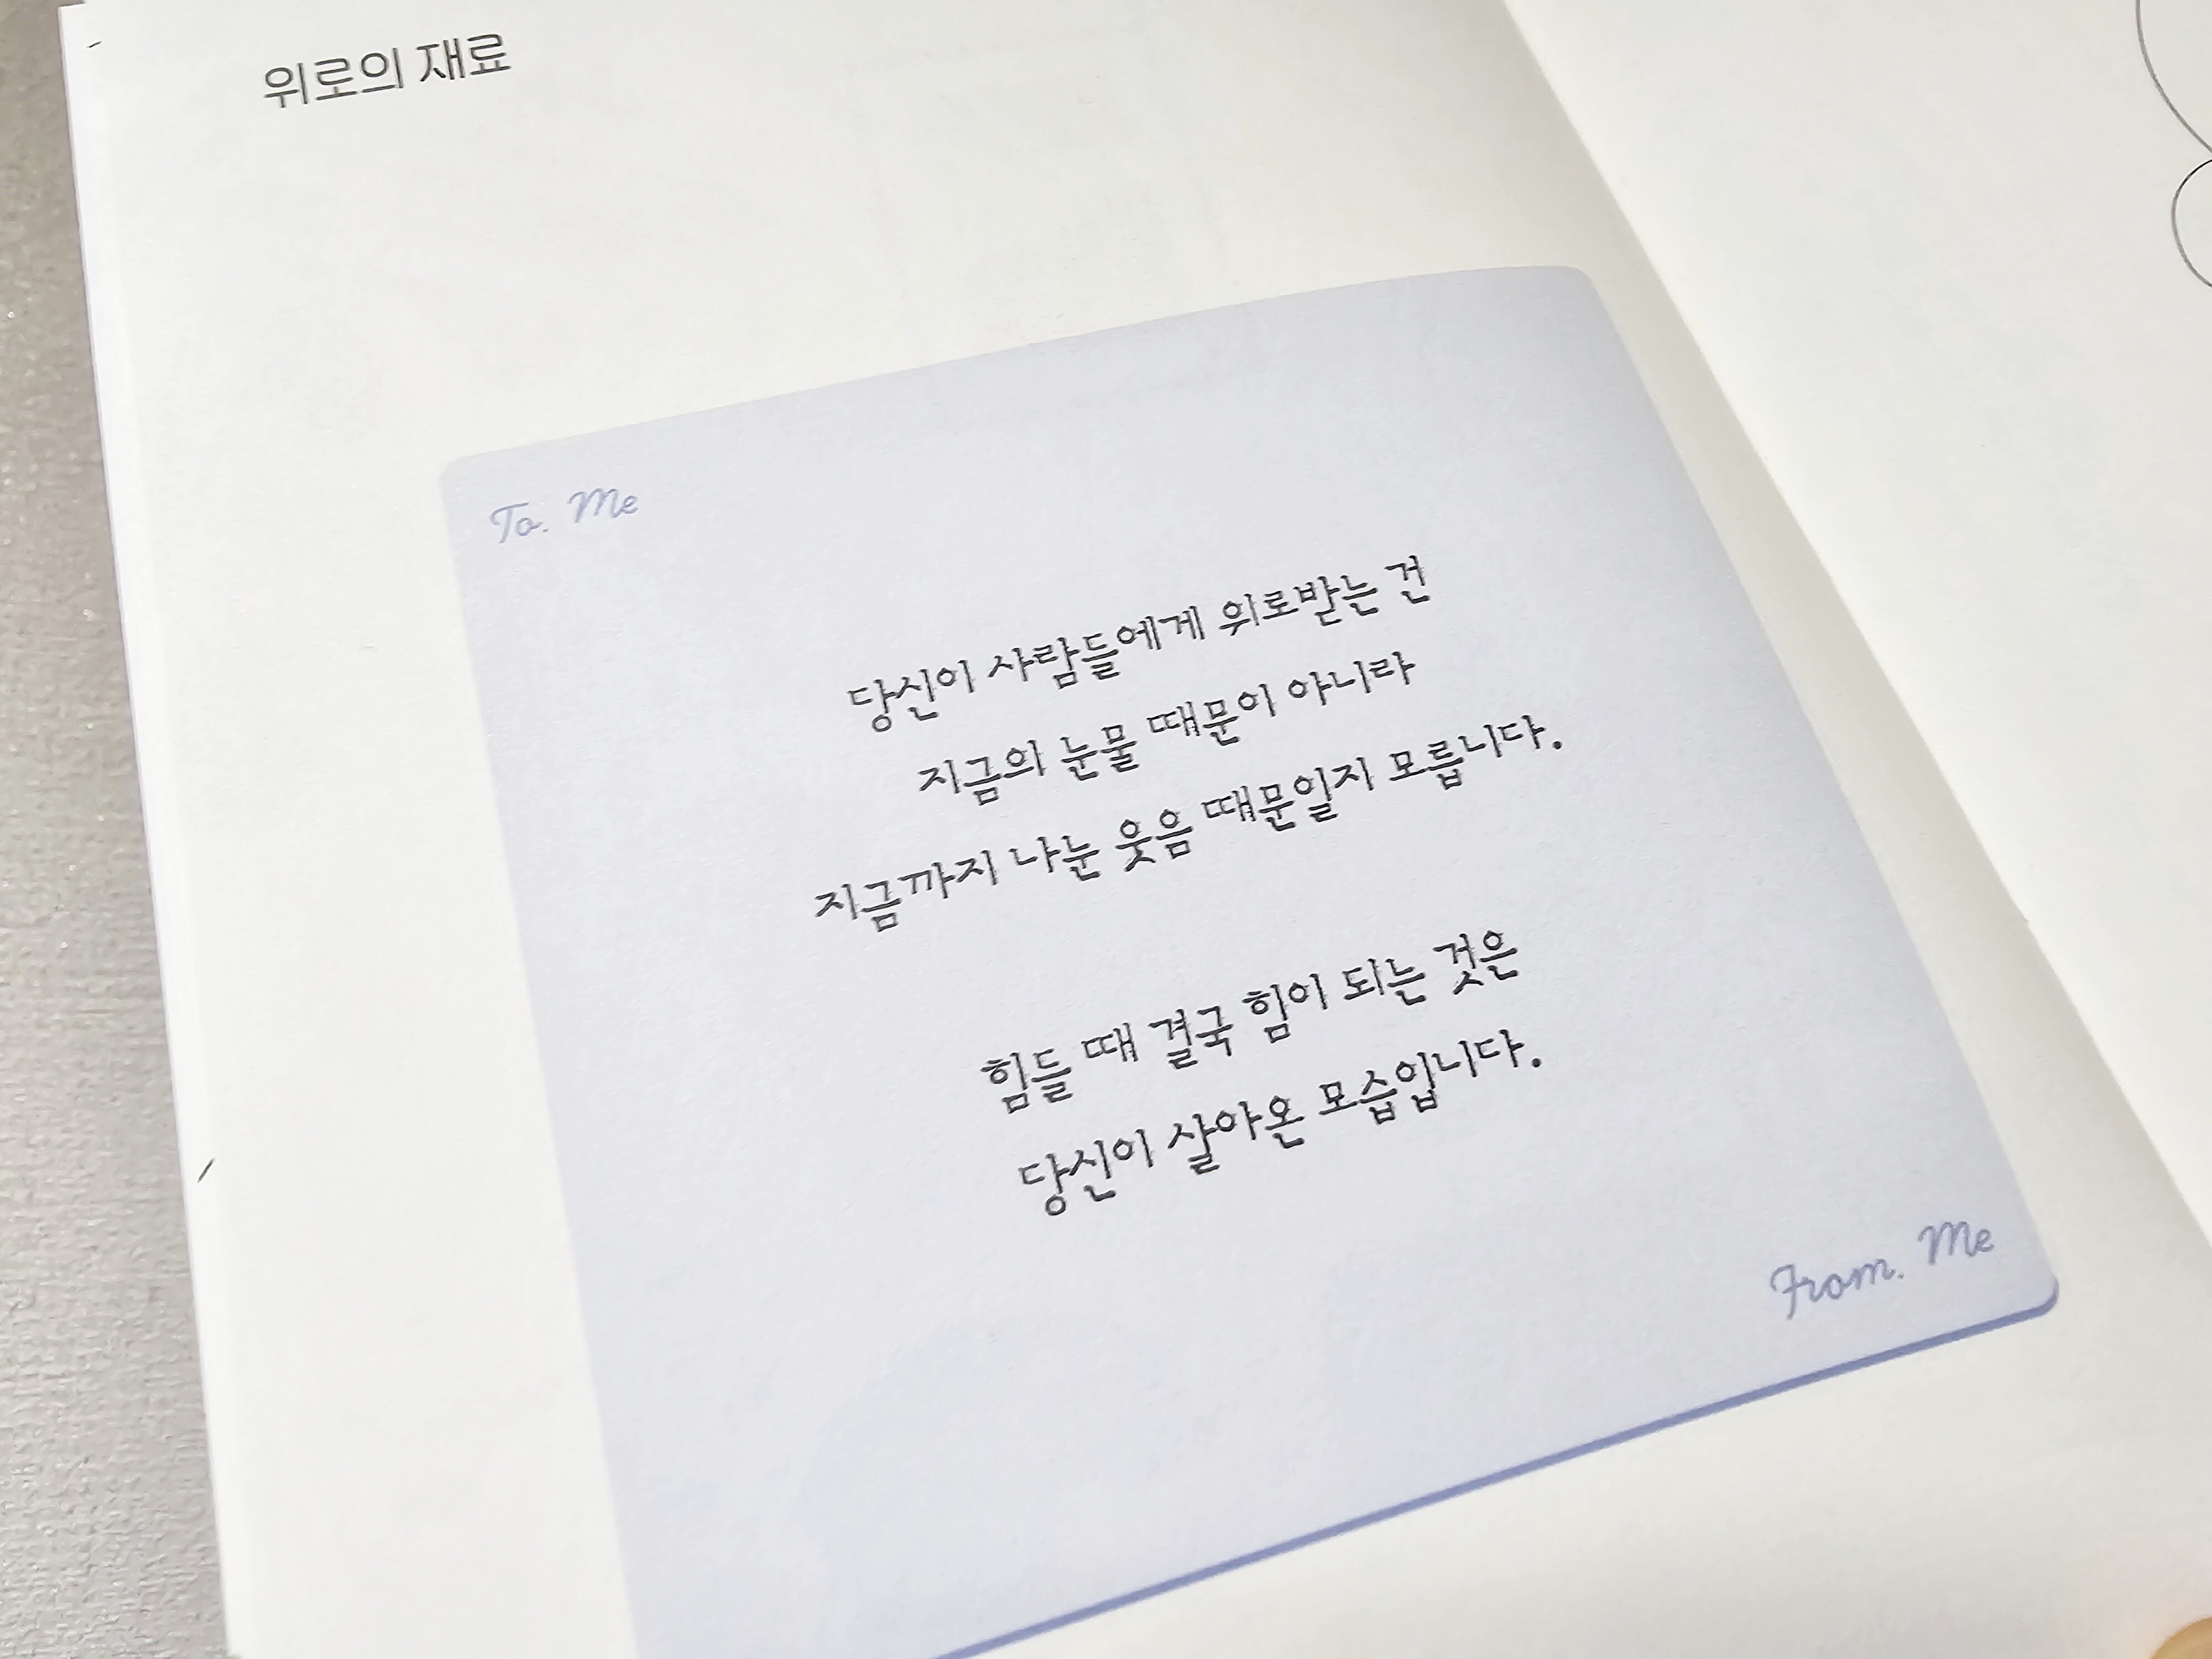 위로의 재료
To. Me
당신이 사람들에게 위로받는 건
지금의 눈물 때문이 아니라
지금까지 나눈 웃음 때문일지 모릅니다.
힘들 때 결국 힘이 되는 것은
당신이 살아온 모습입니다.
From. Me